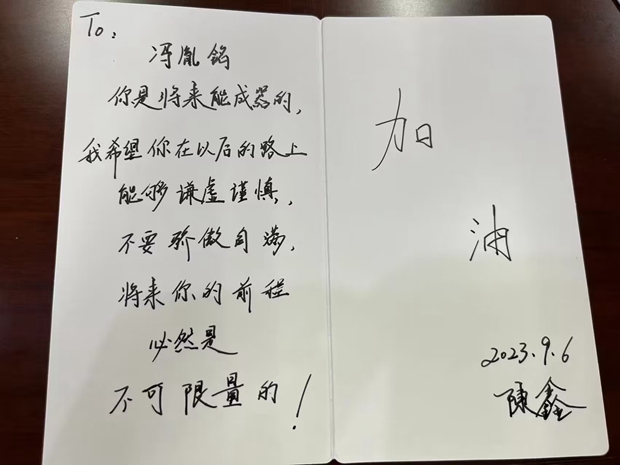 To:
冯胤铭
你是将来能成器的,
我希望你在以后的路上
能够谦虚谨慎,
不要骄傲自满,
将来你的前程
必然是
不可限量的!
加
油
2023.9.6
陈鑫